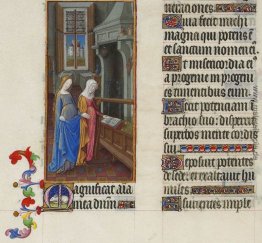 agnificat aīa
mea dñm
nerationes
Quia fecit michi
magna qui potens ē
et sanctum nomen e
Et misericordia ei
a progenie in progeni
es timentibus eum
Fecit potentiam ī
brachio suo: dispersit
superbos mente cordis
sui
Deposuit potentes
de sede: et exaltavit hu
miles
Esurientes imple